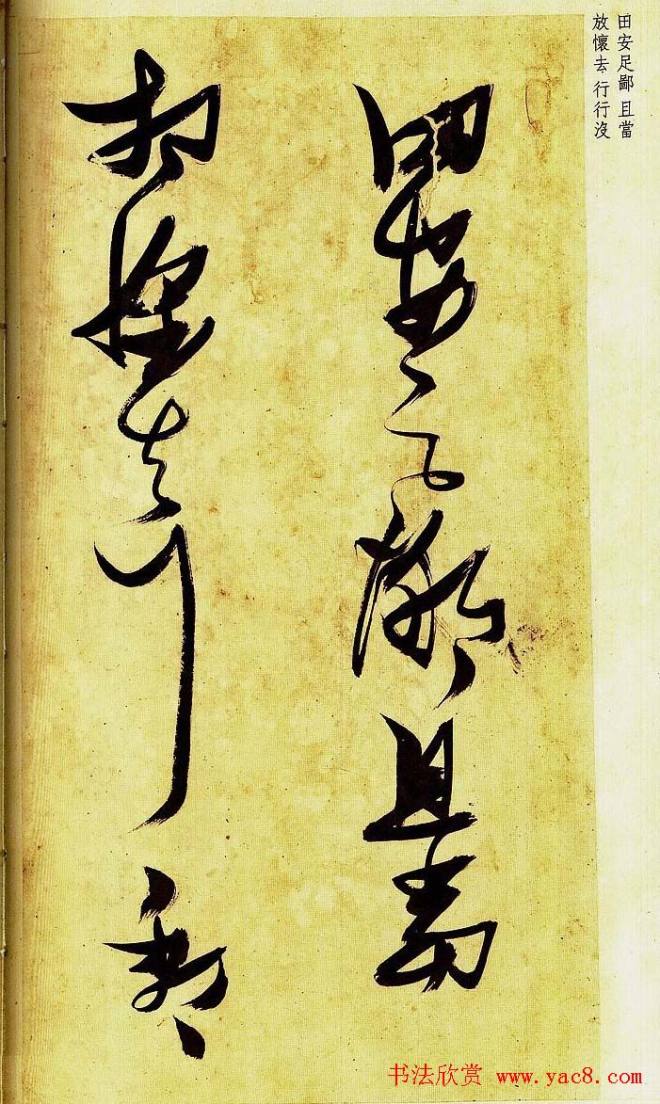 田安足鄙 且當
放懷去 行行沒
田安足鄙且當
放懷去行行沒
书法欣赏 www.yac8.com